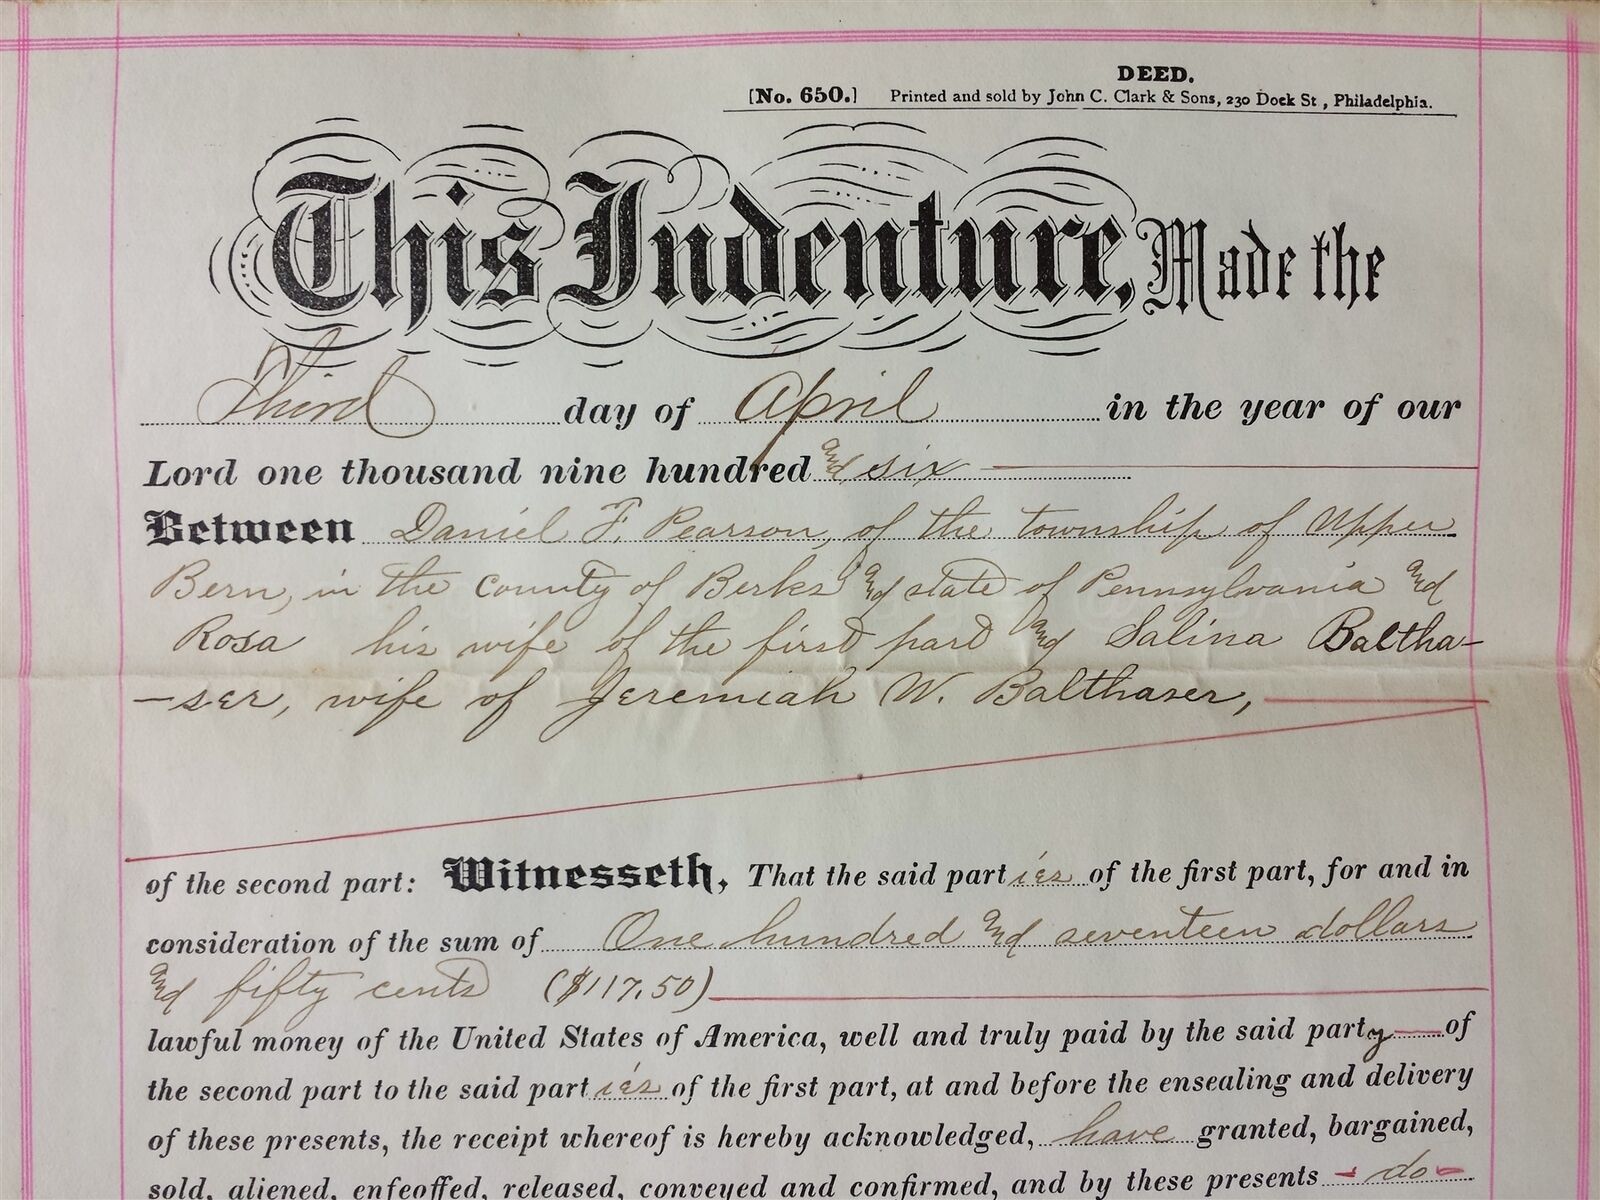 DEED.
[No. 650.] Printed and sold by John C. Clark & Sons, 230 Dock St, Philadelphia.
This Indenture, Made the
Third day of April in the year of our
Lord one thousand nine hundred and six
Between Daniel F. Pearson, of the township of Upper
Bern, in the County of Berks and state of Pennsylvania and
Rosa his wife of the first part and Salina Baltha-
-ser, wife of Jeremiah W. Balthaser,
of the second part: Witnesseth, That the said parties of the first part, for and in
consideration of the sum of One hundred and seventeen dollars
and fifty cents ($117.50)
lawful money of the United States of America, well and truly paid by the said party of
the second part to the said parties of the first part, at and before the ensealing and delivery
of these presents, the receipt whereof is hereby acknowledged, have granted, bargained,
sold, aliened, enfeoffed, released, conveyed and confirmed, and by these presents - do -